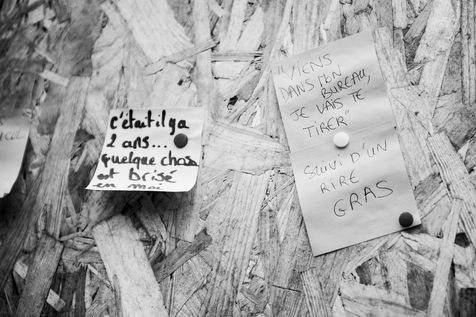 c'était il y a
2 ans...
quelque chose
est brisé
en moi
"VIENS
DANS MON
BUREAU,
JE VAIS TE
TIRER"
SUIVI D'UN
RIRE
GRAS